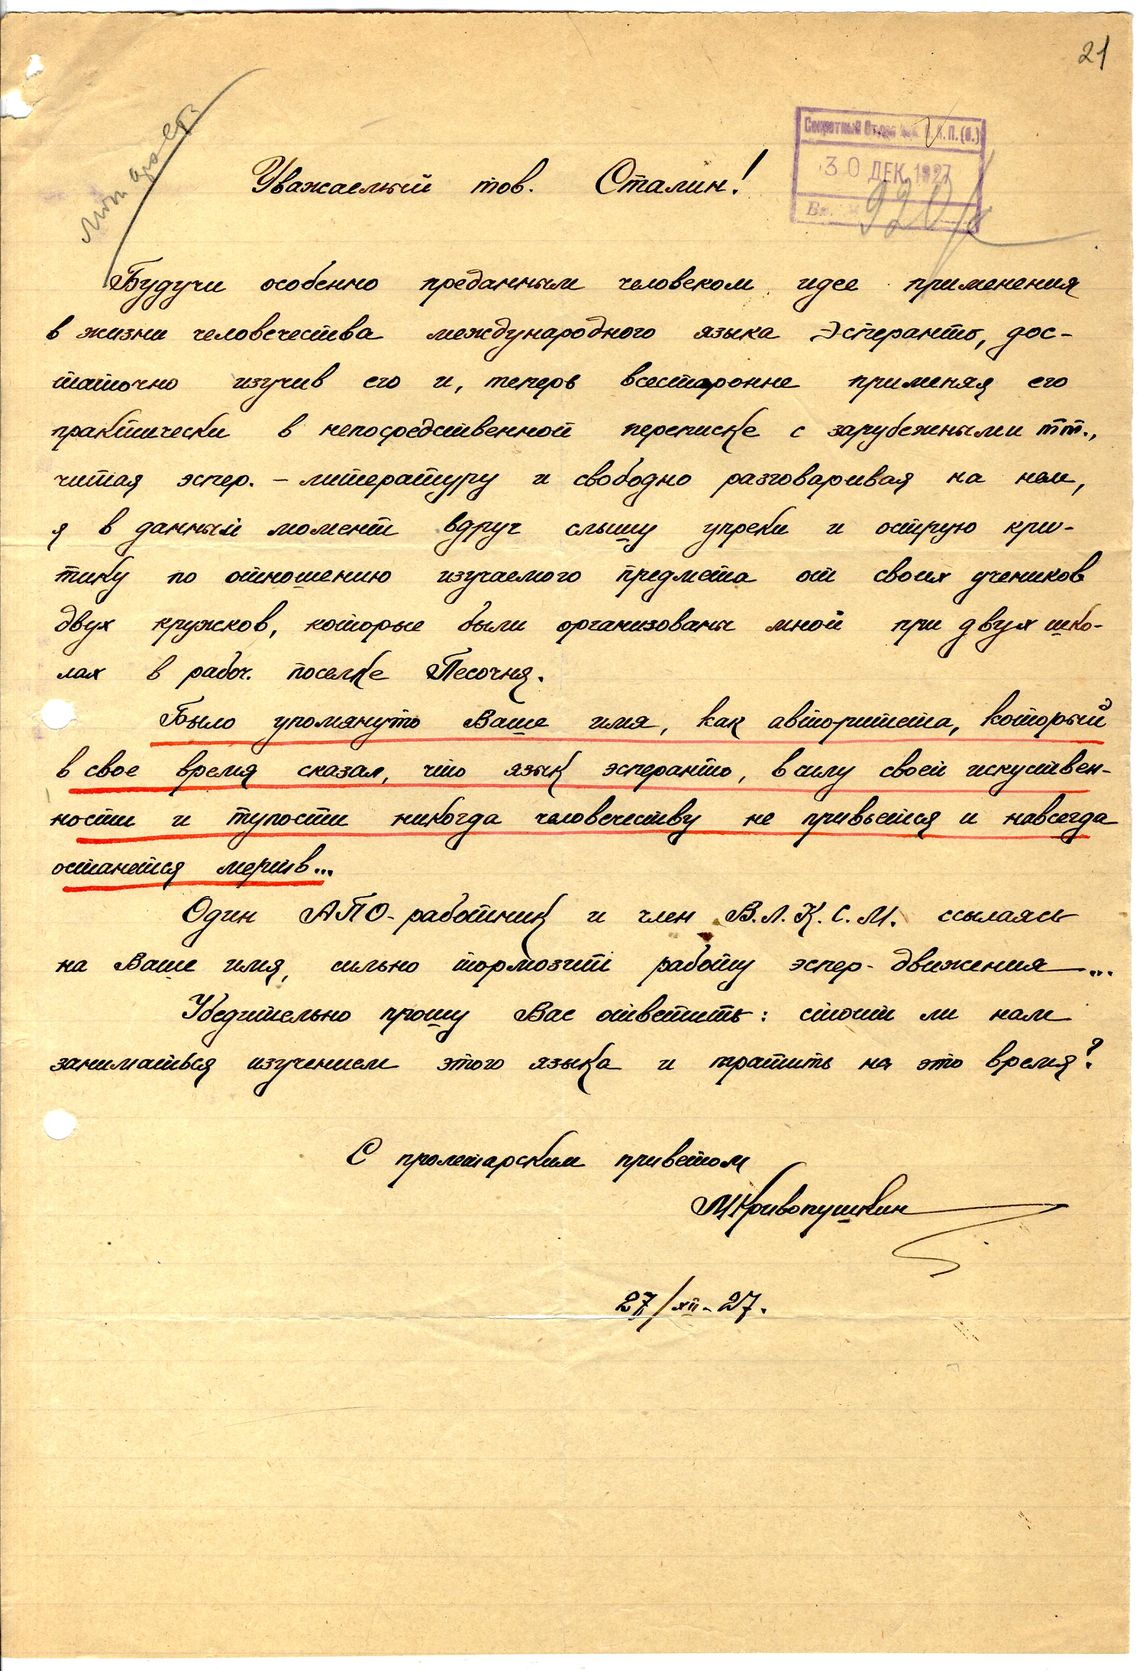 21
Секретный Отдел Ц.К. В.К.П.(б.)
30 ДЕК. 1927
Вх. №
Уважаемый тов. Сталин!
Будучи особенно преданным человеком идее применения
в жизни человечества международного языка Эсперанто, дос-
таточно изучив его и, теперь всесторонне применяя его
практически в непосредственной переписке с зарубежными тт.,
читая эспер. – литературу и свободно разговаривая на нем,
я в данный момент вдруг слышу упреки и острую кри-
тику по отношению изучаемого предмета от своих учеников
двух кружков, которые были организованы мной при двух шко-
лах в рабоч. поселке Песочня.
Было упомянуто Ваше имя, как авторитета, который
в свое время сказал, что язык эсперанто, в силу своей искуствен-
ности и тупости никогда человечеству не привьется и навсегда
останется мертв...
Один АПО-работник и член В.Л.К.С.М. ссылаясь
на Ваше имя, сильно тормозит работу эспер-движения...
Убедительно прошу Вас ответить: стоит ли нам
заниматься изучением этого языка и тратить на это время?
С пролетарским приветом
М Кривопушкин
27/XII-27.